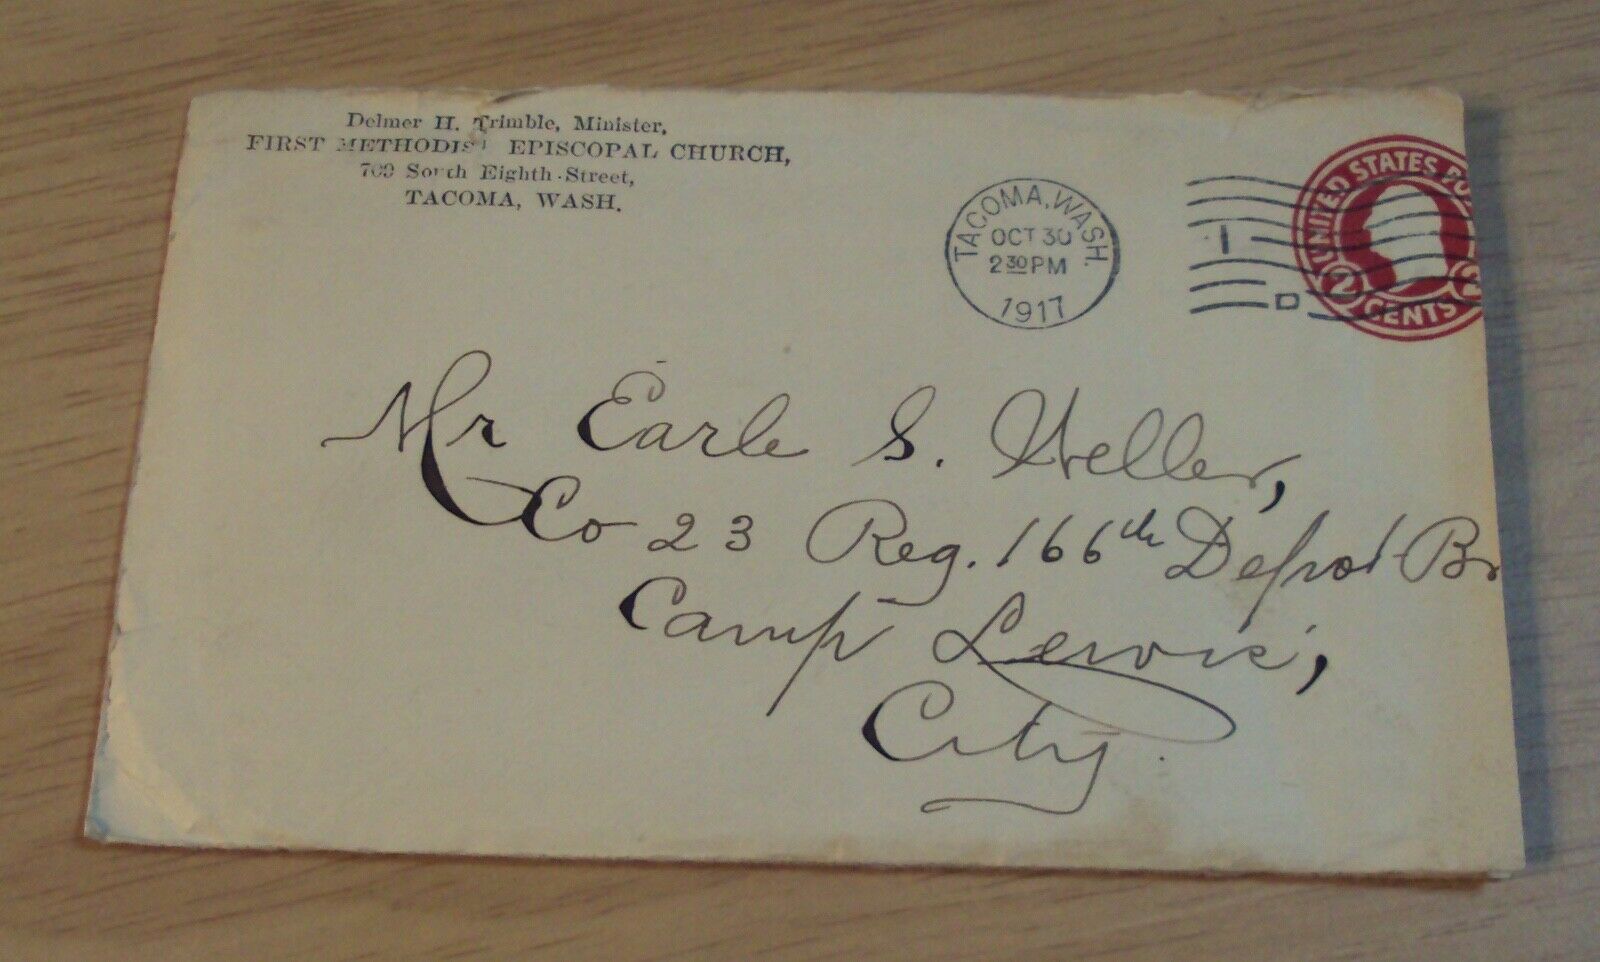 Delmer H. Trimble, Minister,
FIRST METHODIST EPISCOPAL CHURCH,
709 South Eighth Street,
TACOMA, WASH.
TACOMA, WASH.
OCT 30
2 30 PM
1917
1
D
UNITED STATES PO
2 CENTS 2
Mr Earle S. Weller,
Co 23 Reg. 166th Depot Br
Camp Lewis,
City.